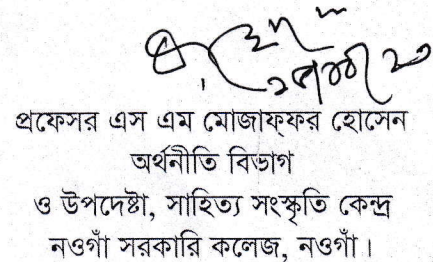 প্রফেসর এস এম মোজাফ্ফর হোসেন
অর্থনীতি বিভাগ
ও উপদেষ্টা, সাহিত্য সংস্কৃতি কেন্দ্র
নওগাঁ সরকারি কলেজ, নওগাঁ।